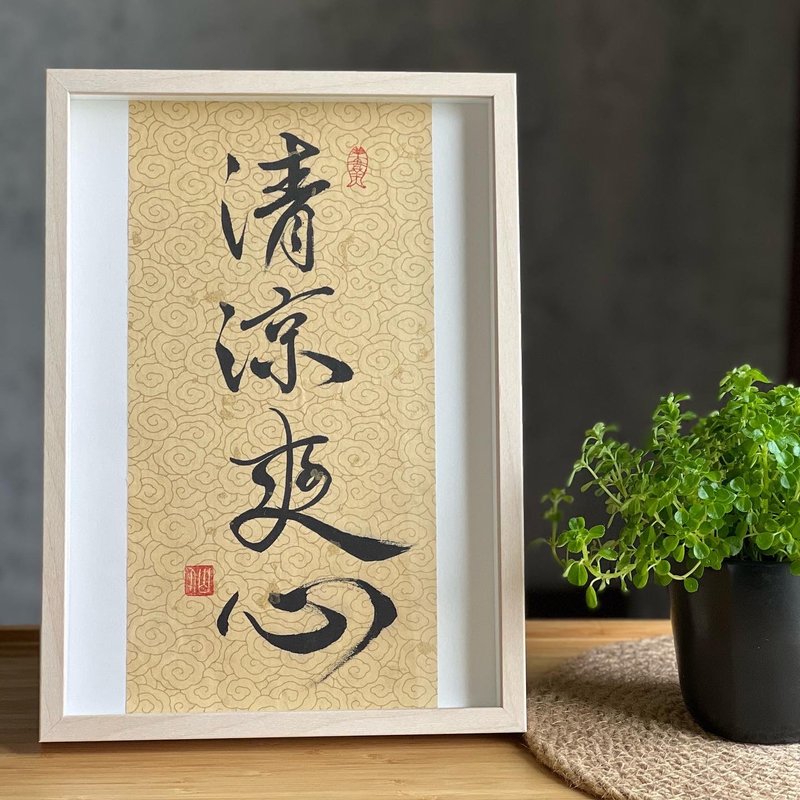 清涼爽心